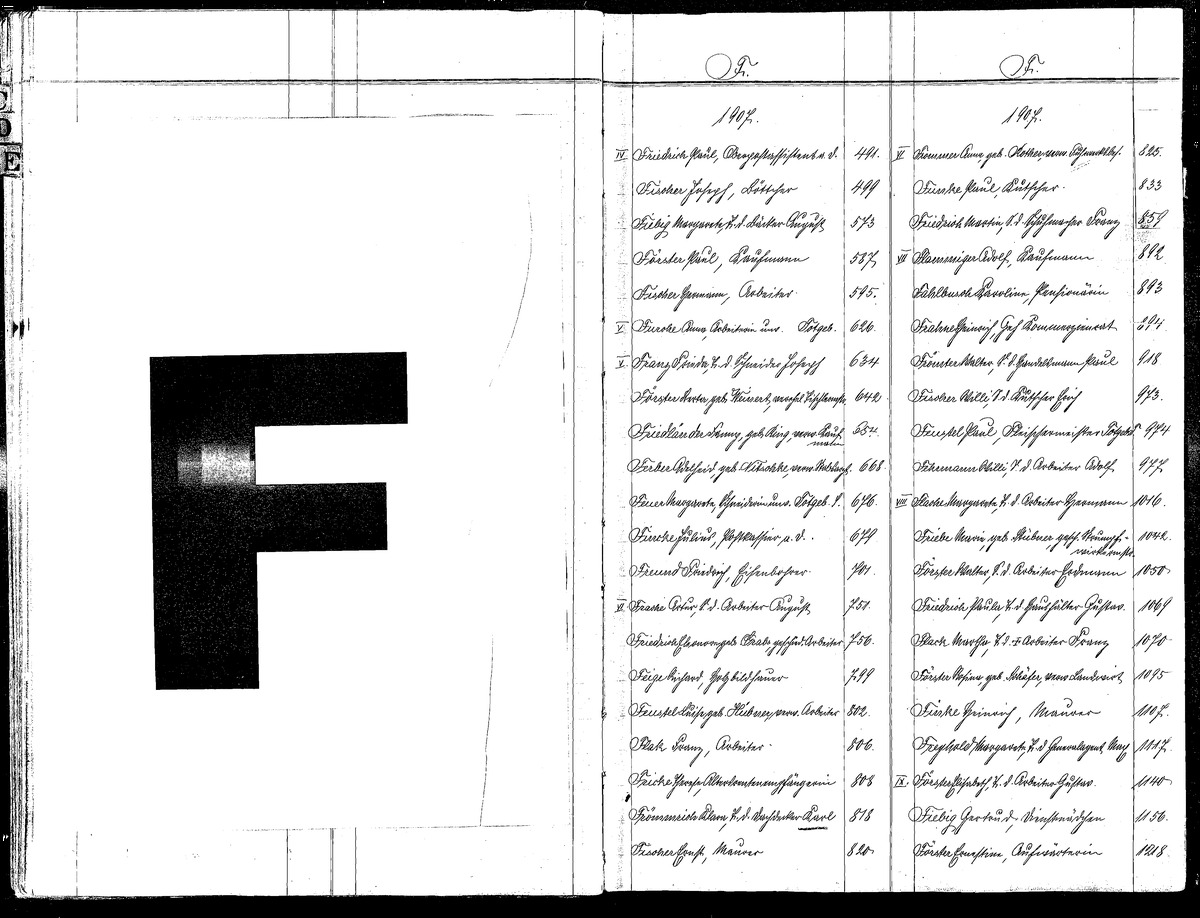 C
D
E
F
F.
1907.
IV Friedrich Paul, Oberpostassistent a. d. 491.
Fischer Joseph, Böttcher 499
Fiebig Margarete, T. d. Bäcker August 573
Förster Paul, Kaufmann 587
Fischer Hermann, Arbeiter 595.
V Anna, Arbeiterin unv. Totgeb. 626.
V Franz Frieda, T. d. Schneider Joseph 634
Förster geb. 642
Friedländer Fanny, geb. Ring, verw. Kaufmann
Ferber Adelheid, geb. Nitschke, verw. 668.
Margarete, Schneiderin unv. Totgeb. S. 676.
Julius, Postkassier, a. d. 679
Freund Friedrich, Eisenbohrer 701.
V Artur, S. d. Arbeiter August 751.
Friedrich Eleonore, geb. geschied. Arbeiter 756.
Feige Richard, Holzbildhauer 799
Fenstel Luise, geb. Hübner, verw. Arbeiter 802.
Flak Franz, Arbeiter 806.
Fricke Therese, Altersrentenempfängerin 808
Klara, T. d. Dachdecker Karl 818
Fischer Ernst, Maurer 820
F.
1907.
VI Frommer Anna, geb. Rother, verw. 825.
Funke Paul, Kutscher 833
Friedrich Martin, S. d. Schuhmacher Franz 859
VII Flamminger Adolf, Kaufmann 892
Fahlbusch Karoline, Pensionärin 893
Heinrich, Geh. Kommerzienrat 894
Walter, S. d. Handelsmann Paul 918
Fischer Willi, S. d. Kutscher Erich 973.
Fenstel Paul Fleischermeister Totgeb. 974
Fuhrmann Willi, S. d. Arbeiter Adolf 977
VIII Margarete, T. d. Arbeiter Hermann 1016.
Friebe Marie, geb. Hübner, gesch. Strumpf-
wirkermstr. 1042.
Förster Walter, S. d. Arbeiter Erdmann 1050
Friedrich Paula, T. d. Haushälter Gustav. 1069
Flach Martha, T. d. Arbeiter Franz 1070
Förster Rosina, geb. Schäfer, verw. Landwirt 1095
Heinrich, Maurer 1107.
Freyhold Margarete, T. d. Generalagent Max 1117.
IX. Förster Elisabeth, T. d. Arbeiter Gustav. 1140
Fiebig Gertrud, Dienstmädchen 1156.
Förster Ernestine, Aufwärterin 1218.